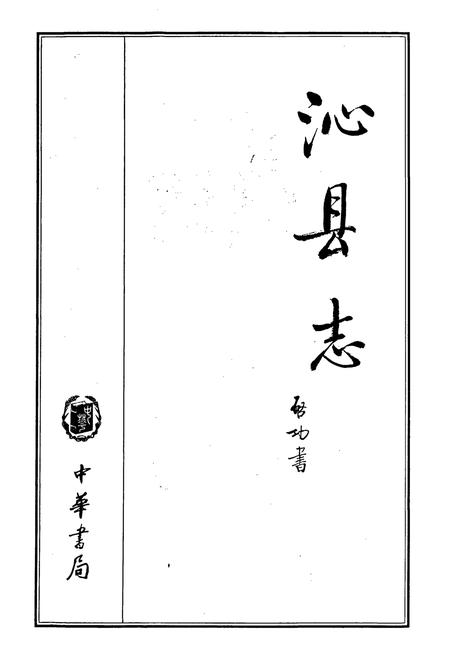 沁县志
启功书
中華書局